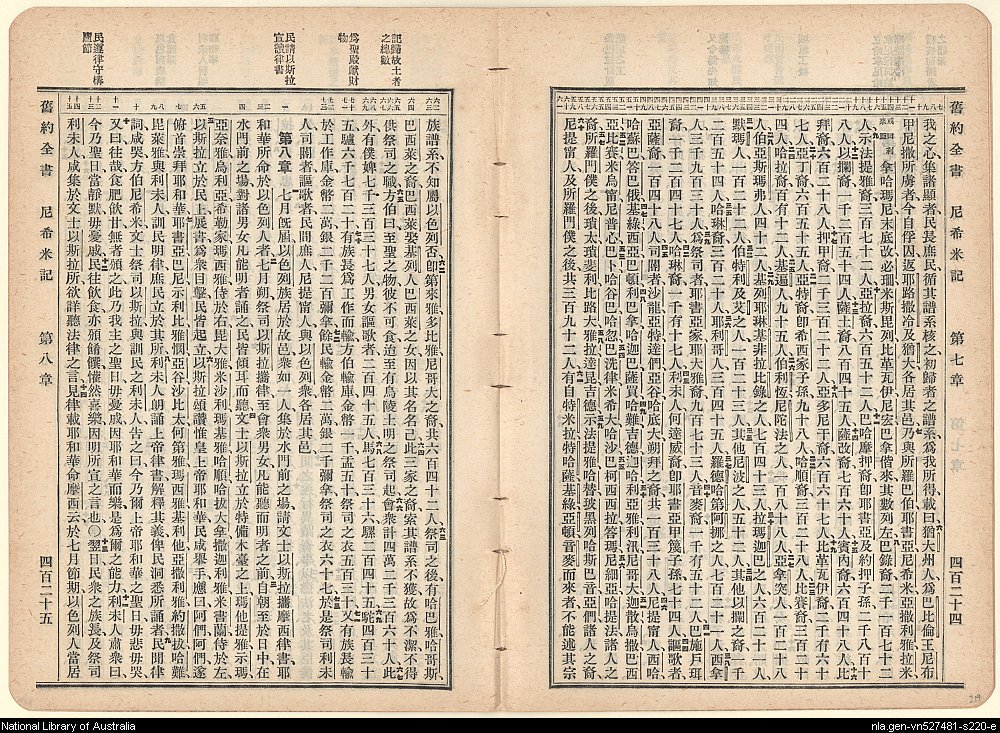 舊約全書 尼希米記 第七章 四百二十四
我之心集諸顯者民長庶民循其譜系核之初歸者之譜系爲我所得載曰猶大州人爲巴比倫王尼布
甲尼撒所虜者今自俘囚返耶路撒冷及猶大各居其邑乃與所羅巴伯耶書亞尼希米亞撒利雅拉米
拿哈瑪尼末底改必珊米斯毘列比革瓦伊尼宏巴拿偕來其數列左巴錄裔二千一百七十二
人示法提雅裔三百七十二人亞拉裔六百五十二人巴哈摩押裔卽耶書亞及約押子孫二千八百十
八人以攔裔一千二百五十四人薩土裔八百四十五人薩改裔七百六十人賓內裔六百四十八人比
拜裔六百二十八人押甲裔二千三百二十二人亞多尼干裔六百六十七人比革瓦伊裔二千有六十
七人亞丁裔六百五十五人亞特裔卽希西家子孫九十八人哈順裔三百二十八人比賽裔三百二十
四人哈拉裔一百十二人基遍人九十五人伯利恆尼陀法之人一百八十八人亞拿突人一百二十八
人伯亞斯瑪弗人四十二人基列耶琳基非拉比錄之人七百四十三人拉瑪迦巴之人六百二十一人
默瑪人一百二十二人伯特利及艾之人一百二十三人其他尼波之人五十二人其他以攔之裔一千
二百五十四人哈琳裔三百二十人耶利哥人三百四十五人羅德哈第阿挪之人七百二十一人西拿
人三千九百三十人爲祭司者耶書亞家耶大雅裔九百七十三人音麥裔一千有五十二人巴施戶珥
裔一千二百四十七人哈琳裔一千有十七人利未人何達威裔卽耶書亞甲篾子孫七十四人謳歌者
亞薩裔一百四十八人司閽者沙龍亞特達們亞谷哈底大朔拜之裔共一百三十八人尼提甯人西哈
哈蘇巴答巴俄基綠西亞巴頓利巴拿哈迦巴薩買哈難吉德迦哈利亞雅利汛尼哥大迦散烏撒巴西
亞比賽米烏甯尼普心巴卜哈谷巴哈忽巴洗律米希大哈沙巴柯西西拉答瑪尼細亞哈提法諸人之
裔所羅門僕之後瑣太瑣斐利比路大雅拉達昆吉德示法提雅哈替披黑列哈斯巴音亞們諸人之裔
尼提甯人及所羅門僕之後共三百九十二人有自特米拉特哈薩基綠亞頓音麥而來者不能述其宗
記歸故土者之總數
爲聖殿獻財物
民請以斯拉宣讀律書
民遵律守構廬節
族譜系不知屬以色列否卽第來雅多比雅尼哥大之裔共六百四十二人祭司之後有哈巴雅哈哥斯
巴西萊之裔巴西萊娶基列人巴西萊之女因以其名名己此三家之裔索其譜系不獲故爲不潔不得
供祭司之職方伯曰至聖之物彼不可食迨至有烏陵土明之祭司起會衆計四萬二千三百六十人此
外有僕婢七千三百三十七人男女謳歌者二百四十五人馬七百三十六騾二百四十五駝四百三十
五驢六千七百二十有族長爲工作而輸方伯輸庫金幣一千盂五十祭司之衣五百三十又有族長輸
於工作庫金幣二萬銀二千二百彌拿餘民輸金幣二萬銀二千彌拿祭司之衣六十七於是祭司利未
人司閽者謳歌者民間庶人尼提甯人與以色列衆各居其邑
第八章 七月旣屆以色列族居於故邑衆如一人集於水門前之場請文士以斯拉攜摩西律書耶
和華所命於以色列人者七月朔祭司以斯拉攜律至會衆男女凡能聽而明者之前自朝至於日中在
水門前之場對諸男女凡能明者誦之民皆傾耳而聽文士以斯拉立於特備木臺之上瑪他提雅示瑪
亞奈雅烏利亞希勒家瑪西雅侍於右毘大雅米沙利瑪基雅哈順哈拔大拿撒迦利雅米書蘭侍於左
以斯拉立於民上展書爲衆目擊民皆起立以斯拉頌讚惟皇上帝耶和華民咸舉手應曰阿們阿們遂
俯首崇拜耶和華耶書亞巴尼示利比雅憫亞谷沙比太何第雅瑪西雅基利他亞撒利雅約撒拔哈難
毘萊雅與利未人訓民明律庶民立於其所利未人朗誦上帝律書解釋其義俾民洞悉所誦者民聞律
詞咸哭方伯尼希米文士祭司以斯拉與訓民之利未人告之曰今乃爾上帝耶和華之聖日毋悲毋哭
又曰往哉食肥飲甘無者頒之此乃我主之聖日毋憂戚因耶和華而樂是爲爾之能力利未人肅衆曰
今乃聖日當靜默毋憂戚民往飲食亦頒餽饋懽然喜樂因明所宣之言也〇翌日民衆之族長及祭司
利未人咸集於文士以斯拉所欲詳聽法律之言見律載耶和華命摩西云於七月節期以色列人當居
舊約全書 尼希米記 第八章 四百二十五
National Library of Australia
nla.gen-vn527481-s220-e